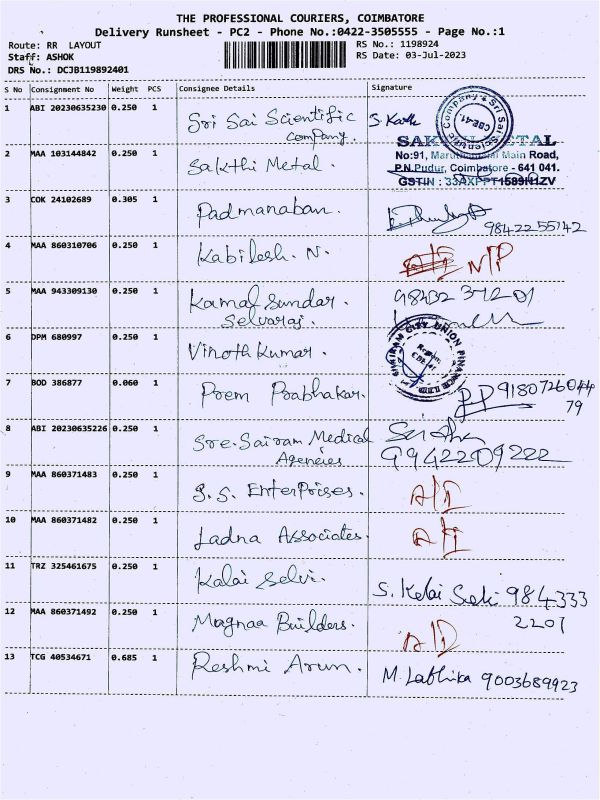 THE PROFESSIONAL COURIERS, COIMBATORE
Delivery Runsheet - PC2 - Phone No.:0422-3505555 - Page No.:1
Route: RR LAYOUT
Staff: ASHOK
DRS No.: DCJB119892401
RS No.: 1198924
RS Date: 03-Jul-2023
S No Consignment No Weight PCS Consignee Details Signature
1 ABI 20230635230 0.250 1 Sri Sai Scientific Company. S. Karth
Company * Sri Sai Scientific CBE-41.
SAKTHI METAL
No:91, Maruthamalai Main Road,
P.N.Pudur, Coimbatore - 641 041.
GSTIN : 33AXPPT1589N1ZV
2 MAA 103144842 0.250 1 Sakthi Metal.
3 COK 24102689 0.305 1 Padmanaban. 9842255142
4 MAA 860310706 0.250 1 Kabilesh. N. N/P
5 MAA 943309130 0.250 1 Kamal Sundar. Selvaraj.
6 DPM 680997 0.250 1 Vinoth Kumar.
CITY UNION FINANCE LTD
7 BOD 386877 0.060 1 Prem Prabhakar. PP 9180726044
79
8 ABI 20230635226 0.250 1 Sre. Sairam Medical Agencies 9942209222
9 MAA 860371483 0.250 1 S. S. Enterprises. A/D
10 MAA 860371482 0.250 1 Ladna Associates.
11 TRZ 325461675 0.250 1 Kalai Selvi. S. Kalai Selvi 984333
2201
12 MAA 860371492 0.250 1 Magnaa Builders. A/D
13 TCG 40534671 0.685 1 Reshmi Arun. M. Labhika 9003689923